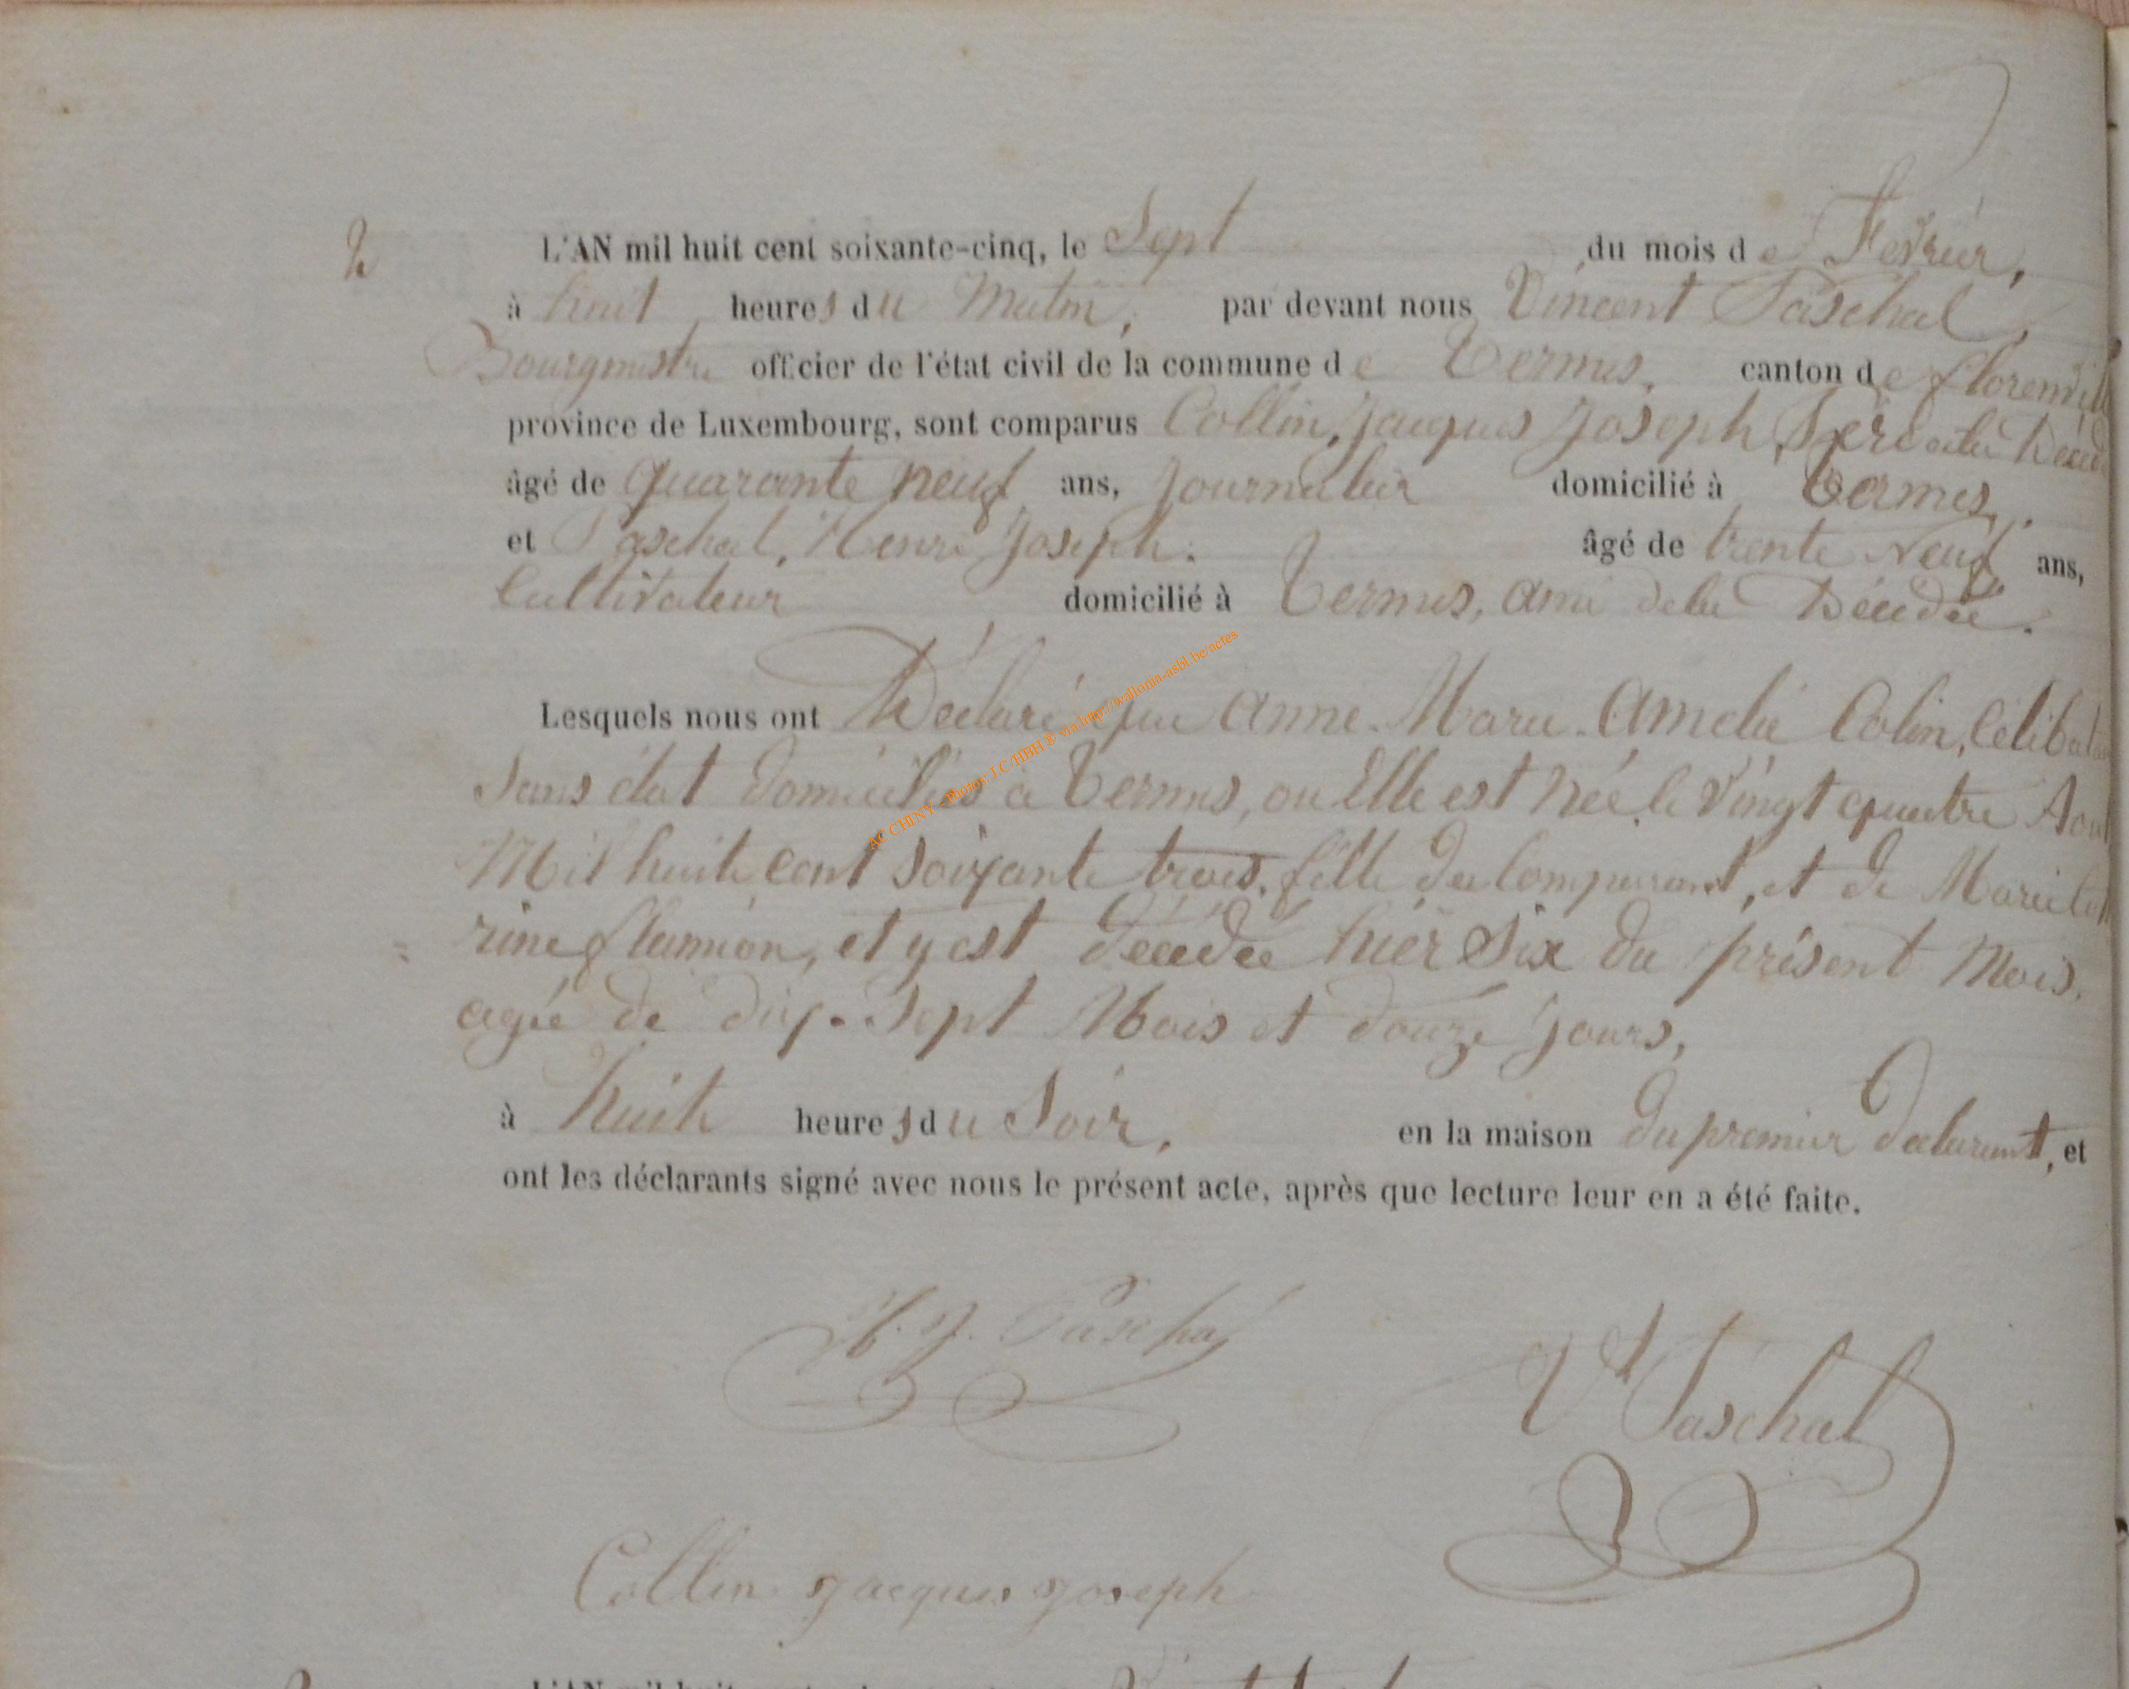 2 L'AN mil huit cent soixante-cinq, le Sept du mois de Fevrier,
à huit heures du Matin, par devant nous Vincent Paschal,
Bourgmestre officier de l'état civil de la commune de Termes, canton de florenville
province de Luxembourg, sont comparus Collin, Jacques Joseph, Père de la Décédé
âgé de quarante neuf ans, Journalier domicilié à Termes,
et Paschal, Henri Joseph. âgé de trente Neuf ans,
Cultivateur domicilié à Termes, ami de la Décédée.
Lesquels nous ont Déclaré que Anne. Marie. Amelie Colin, Céliba
Sans état domiciliée à Termes, ou Elle est Née le Vingt quatre Aou
Mil huit cent Soixante trois, fille du Comparant, et de Marie Cat
rine flamion, et y est décédée hier Six du présent Mois,
agée de dix-Sept Mois et douze Jours,
à huit heures du Soir, en la maison du premier déclarant, et
ont les déclarants signé avec nous le présent acte, après que lecture leur en a été faite.
H. J. Paschal
Vt Paschal
Collin Jacques Joseph
AC CHINY - Photos: J.C./HBH ® via http://wallonia-asbl.be/actes